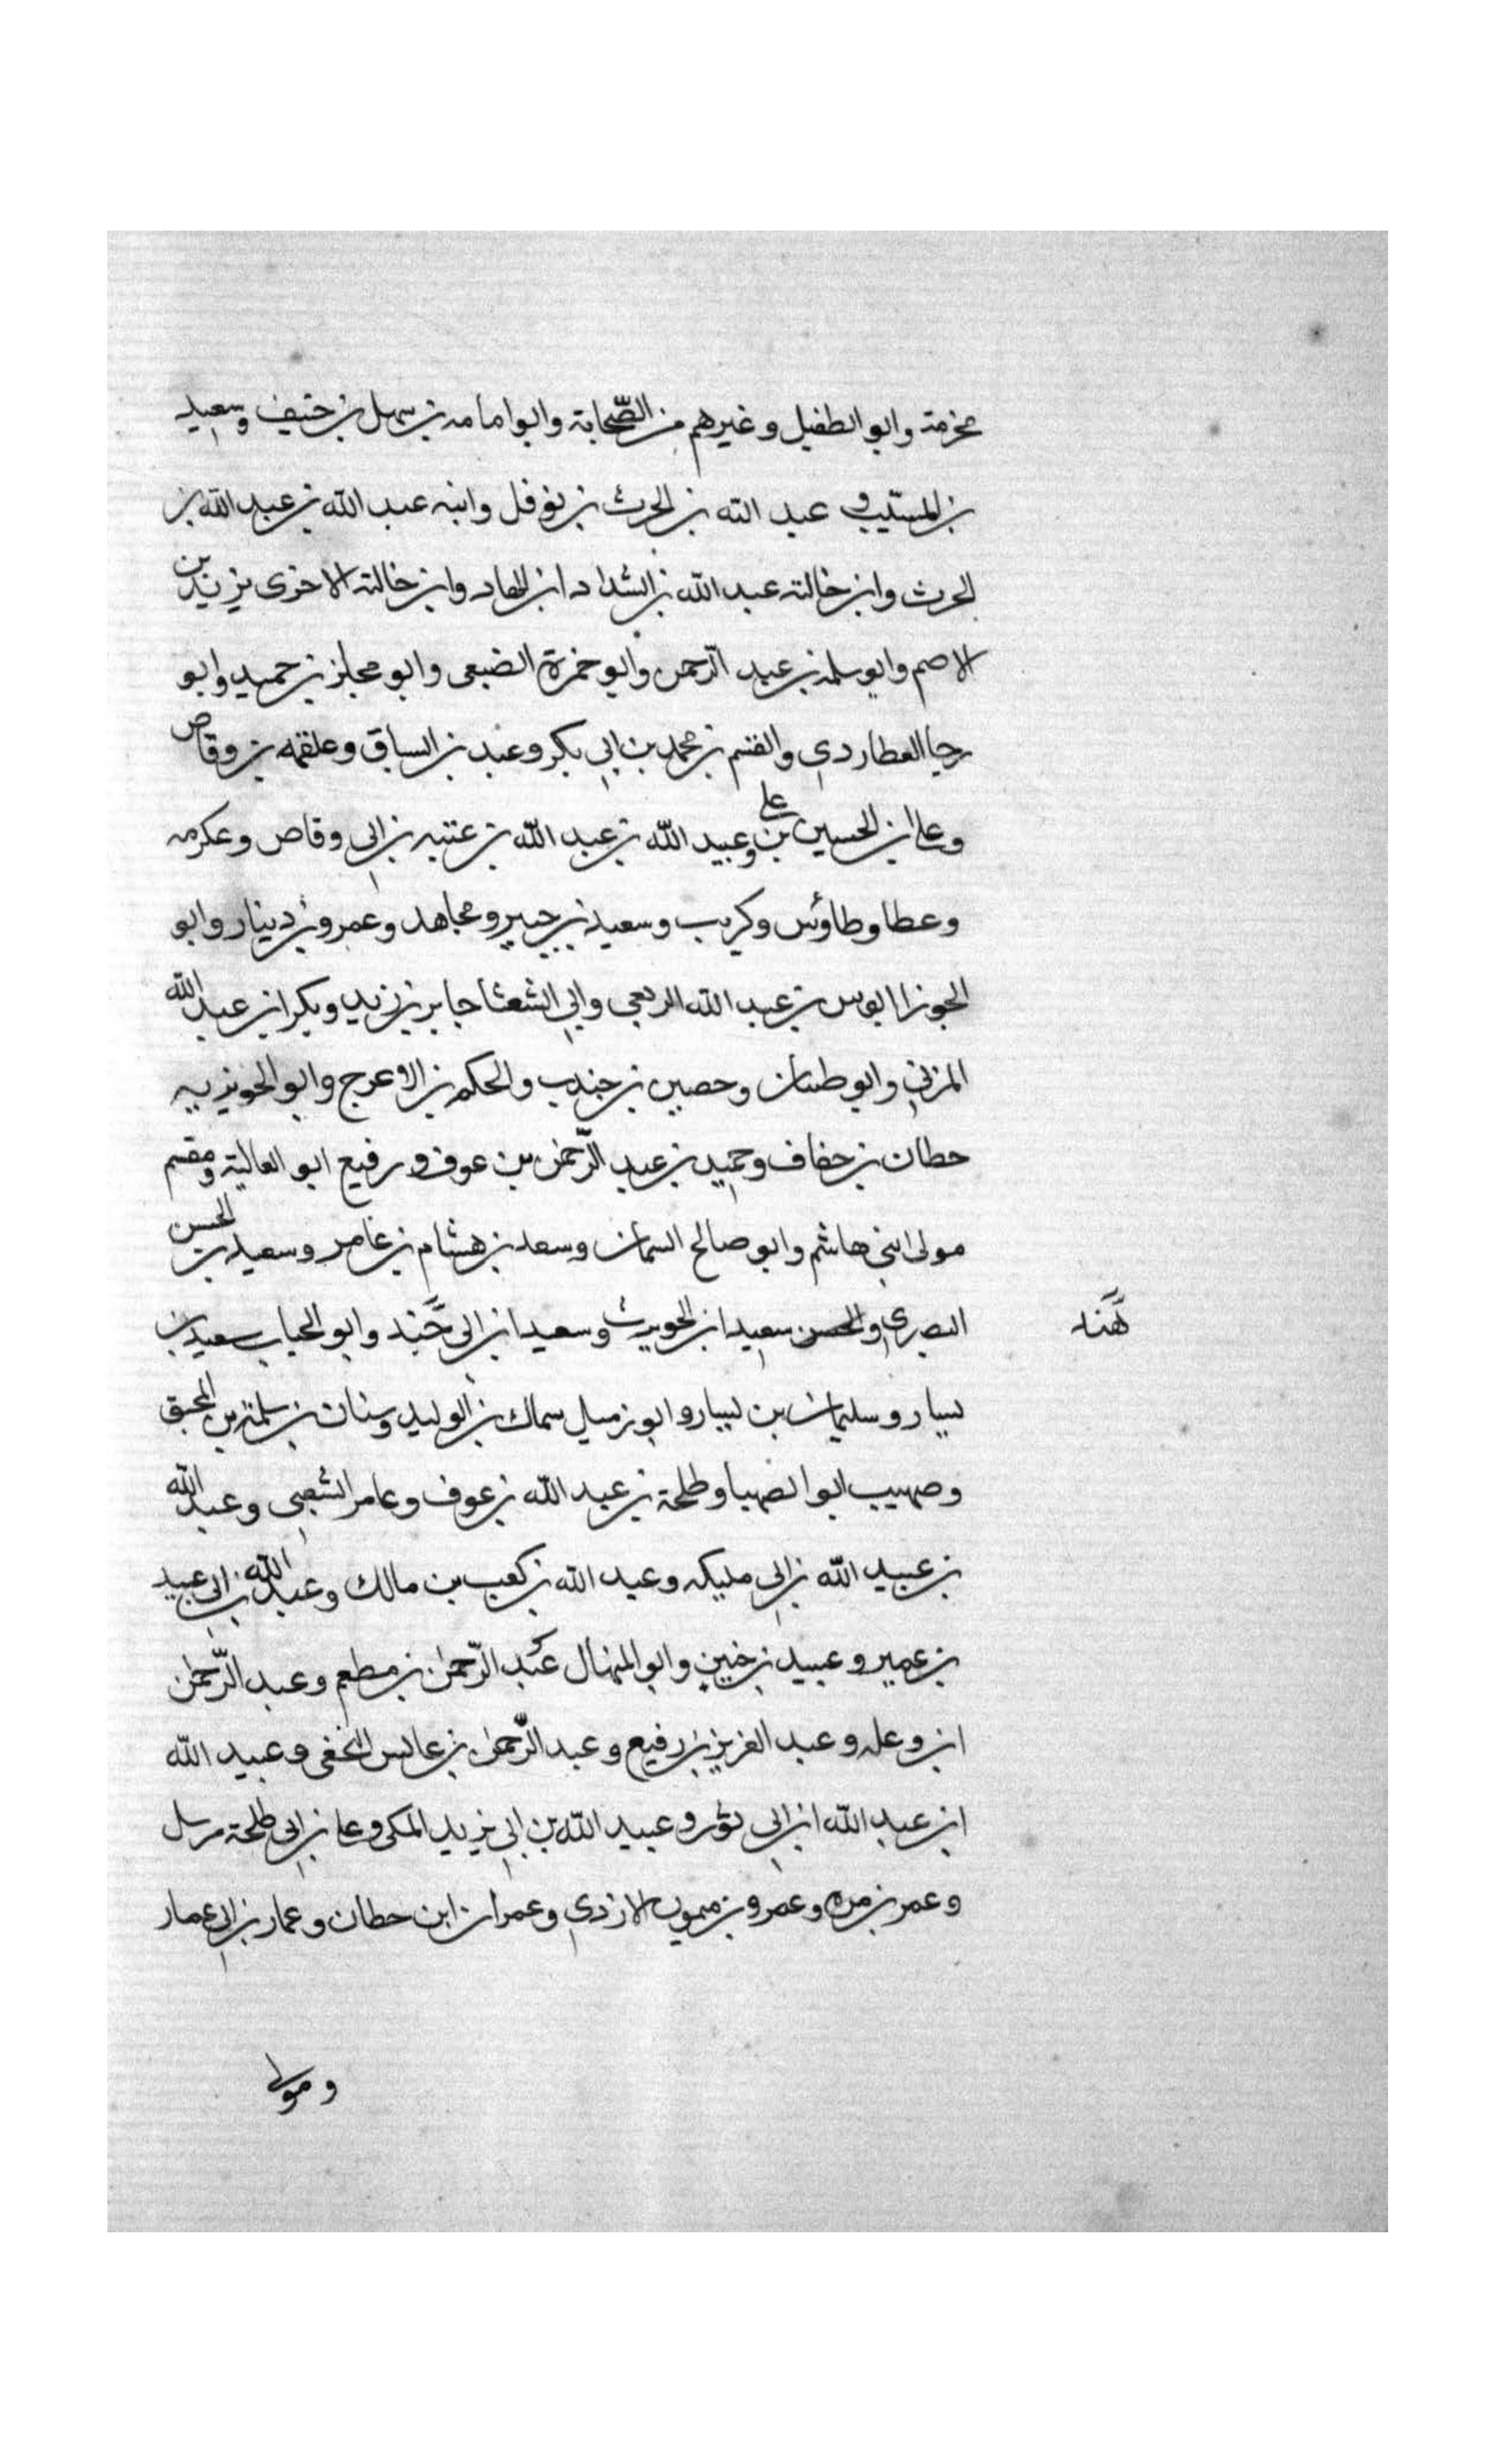 مخرمة وابو الطفيل وغيرهم من الصّحابة وابو امامه بن سهل بن حنيف وسعيد
بن المسيّب و عبد الله بن الحرث بن نوفل وابنه عبد الله بن عبد الله بن
الحرث وابن خالته عبد الله بن الشداد ابن الهاد وابن خالته الاخرى يزيد بن
الاصم وابو سلمه بن عبد الرّحمن وابو حمزة الضبعى وابو مجلز بن حميد وابو
رجا العطاردي والقسم بن محمد بن ابي بكر وعبد بن السباق وعلقمه بن وقاص
وعلي ابن الحسين بن علي وعبيد الله بن عبد الله بن عتبه بن ابى وقاص وعكرمه
وعطا وطاؤس وكريب وسعيد بن جبير ومجاهد وعمرو بن دينار وابو
الجوزا اوس بن عبد الله الربعي وابي الشعثا جابر بن زيد وبكر ابن عبد الله
المزني وابو طبيان وحصين بن جندب والحكم بن الاعرج وابو الجويريه
حطان بن خفاف وحميد بن عبد الرّحمن بن عوف و رفيع ابو العالية ومقسم
مولى ابني هاشم وابو صالح السمان وسعد بن هشام بن عامر وسعيد بن الحسن
البصري والحسن سعيد ابن الحويرث وسعيد ابن ابى هَند وابو الحباب سعيد بن
هَّند
يسار وسليمان بن يسار وابو زميل سماك بن الوليد وسنان بن سلمة بن المحبق
وصهيب ابو الصهبا وطلحة بن عبد الله بن عوف وعامر الشعبى وعبد الله
بن عبيد الله بن ابى مليكه وعبد الله بن كعب بن مالك وعبد الله بن ابى عبيد
بن عمير و عبيد بن حنين وابو المنهال عبد الرّحمن بن مطعم وعبد الرّحمن
ابن وعله وعبد العزيز بن رفيع وعبد الرّحمن بن عابس النخعى وعبيد الله
ابن عبد الله ابن ابى ثور وعبيد الله بن ابي يزيد المكى وعلي بن ابى طلحة مرسل
وعمر بن مره وعمرو بن ميمون الازدي وعمران ابن حطان وعمار بن ابي عمار
ومولى